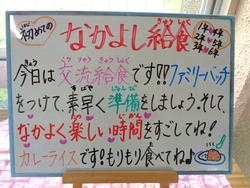 初めての
なかよし給食
1年生4年生
2年生5年生
3年生6年生
今日は交流給食です!!ファミリーバッチ
をつけて、素早く準備をしましょう。そして、
なかよく楽しい時間をすごしてね!
カレーライスです!もりもり食べてね♪